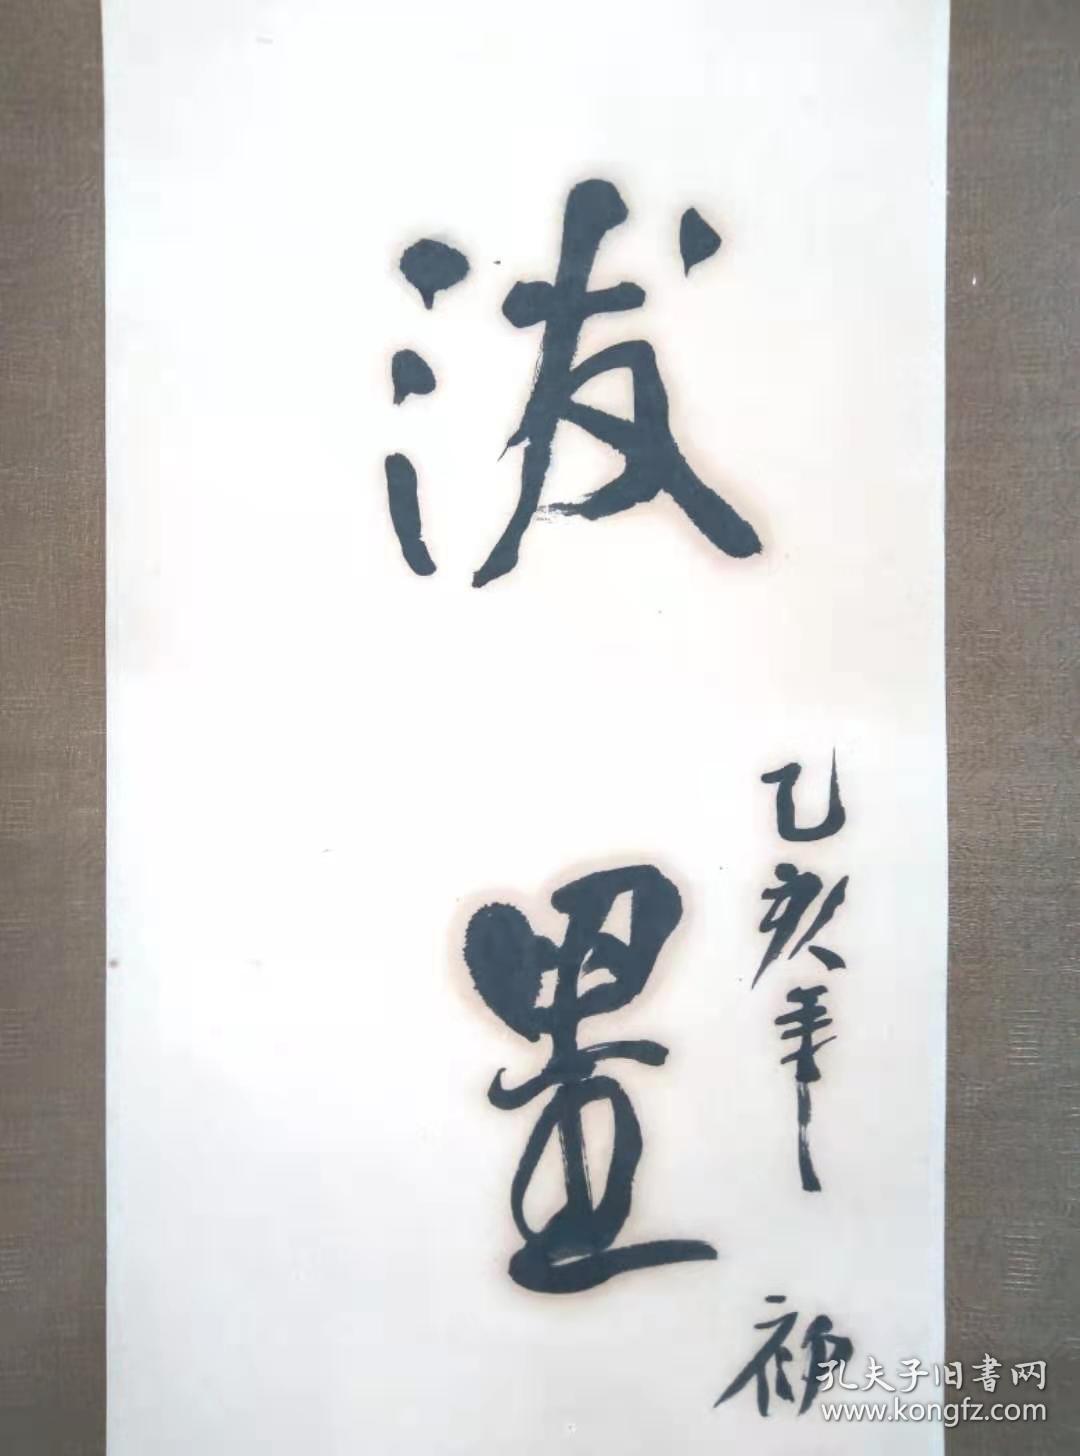 泼
墨
乙亥年
孔夫子旧書网
www.kongfz.com